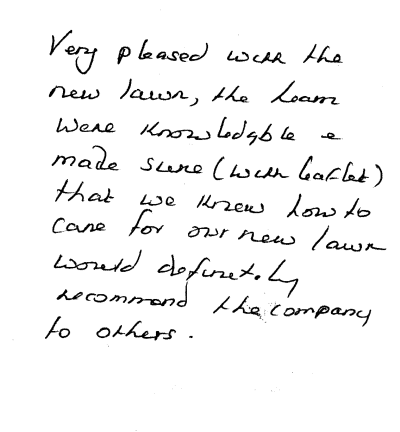 Very pleased with the
new lawn, the team
were knowledgble &
made sure (with leaflet)
that we knew how to
care for our new lawn
would definitely
recommend the company
to others.